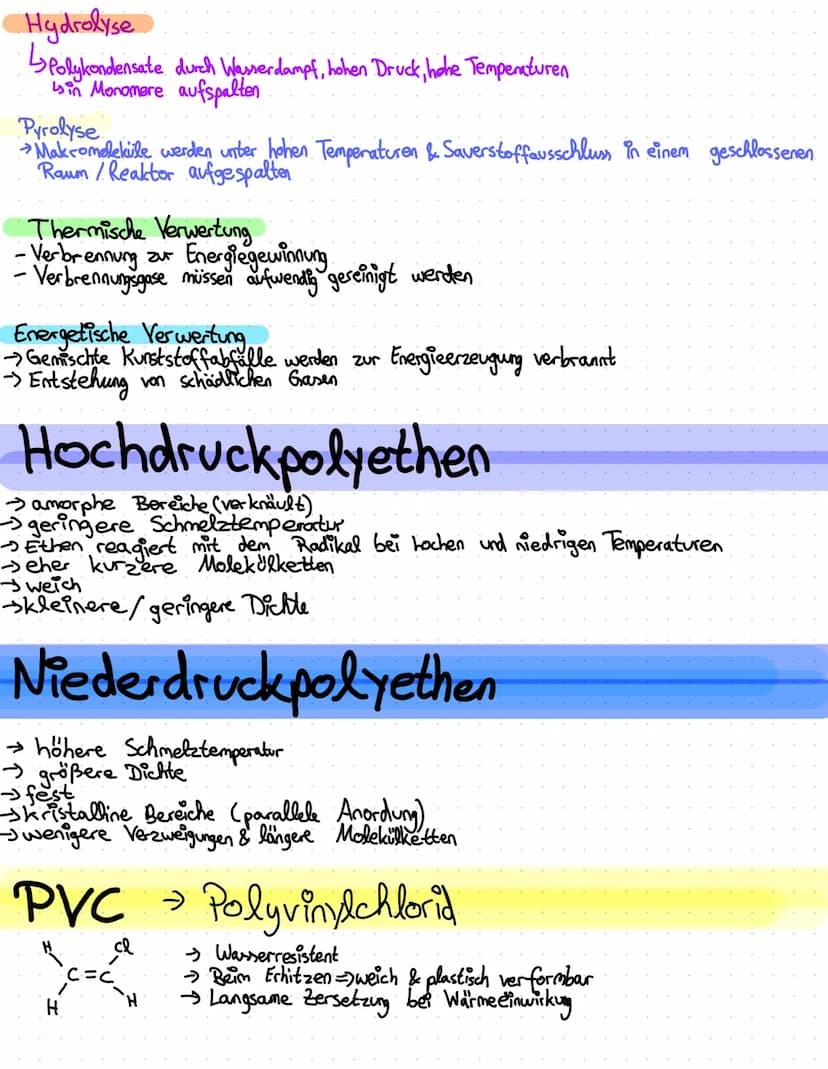 Hydrolyse
↳ Polykondensate durch Wasserdampf, hohen Druck, hohe Temperaturen
↳ in Monomere aufspalten
Pyrolyse
→ Makromoleküle werden unter hohen Temperaturen & Sauerstoffausschluss in einem geschlossenen
Raum / Reaktor aufgespalten
Thermische Verwertung
- Verbrennung zur Energiegewinnung
- Verbrennungsgase müssen aufwendig gereinigt werden
Energetische Verwertung
→ Gemischte Kunststoffabfälle werden zur Energieerzeugung verbrannt
→ Entstehung von schädlichen Gasen
Hochdruckpolyethen
→ amorphe Bereiche (verknäult)
→ geringere Schmelztemperatur
→ Ethen reagiert mit dem Radikal bei hochen und niedrigen Temperaturen
→ eher kurzere Molekülketten
→ weich
→ kleinere / geringere Dichte
Niederdruckpolyethen
→ höhere Schmelztemperatur
→ größere Dichte
→ fest
→ kristalline Bereiche (parallele Anordung)
→ wenigere Verzweigungen & längere Molekülketten
PVC → Polyvinylchlorid
H Cl
C = C
H H
→ Wasserresistent
→ Beim Erhitzen ⇒ weich & plastisch verformbar
→ Langsame Zersetzung bei Wärmeeinwirkung